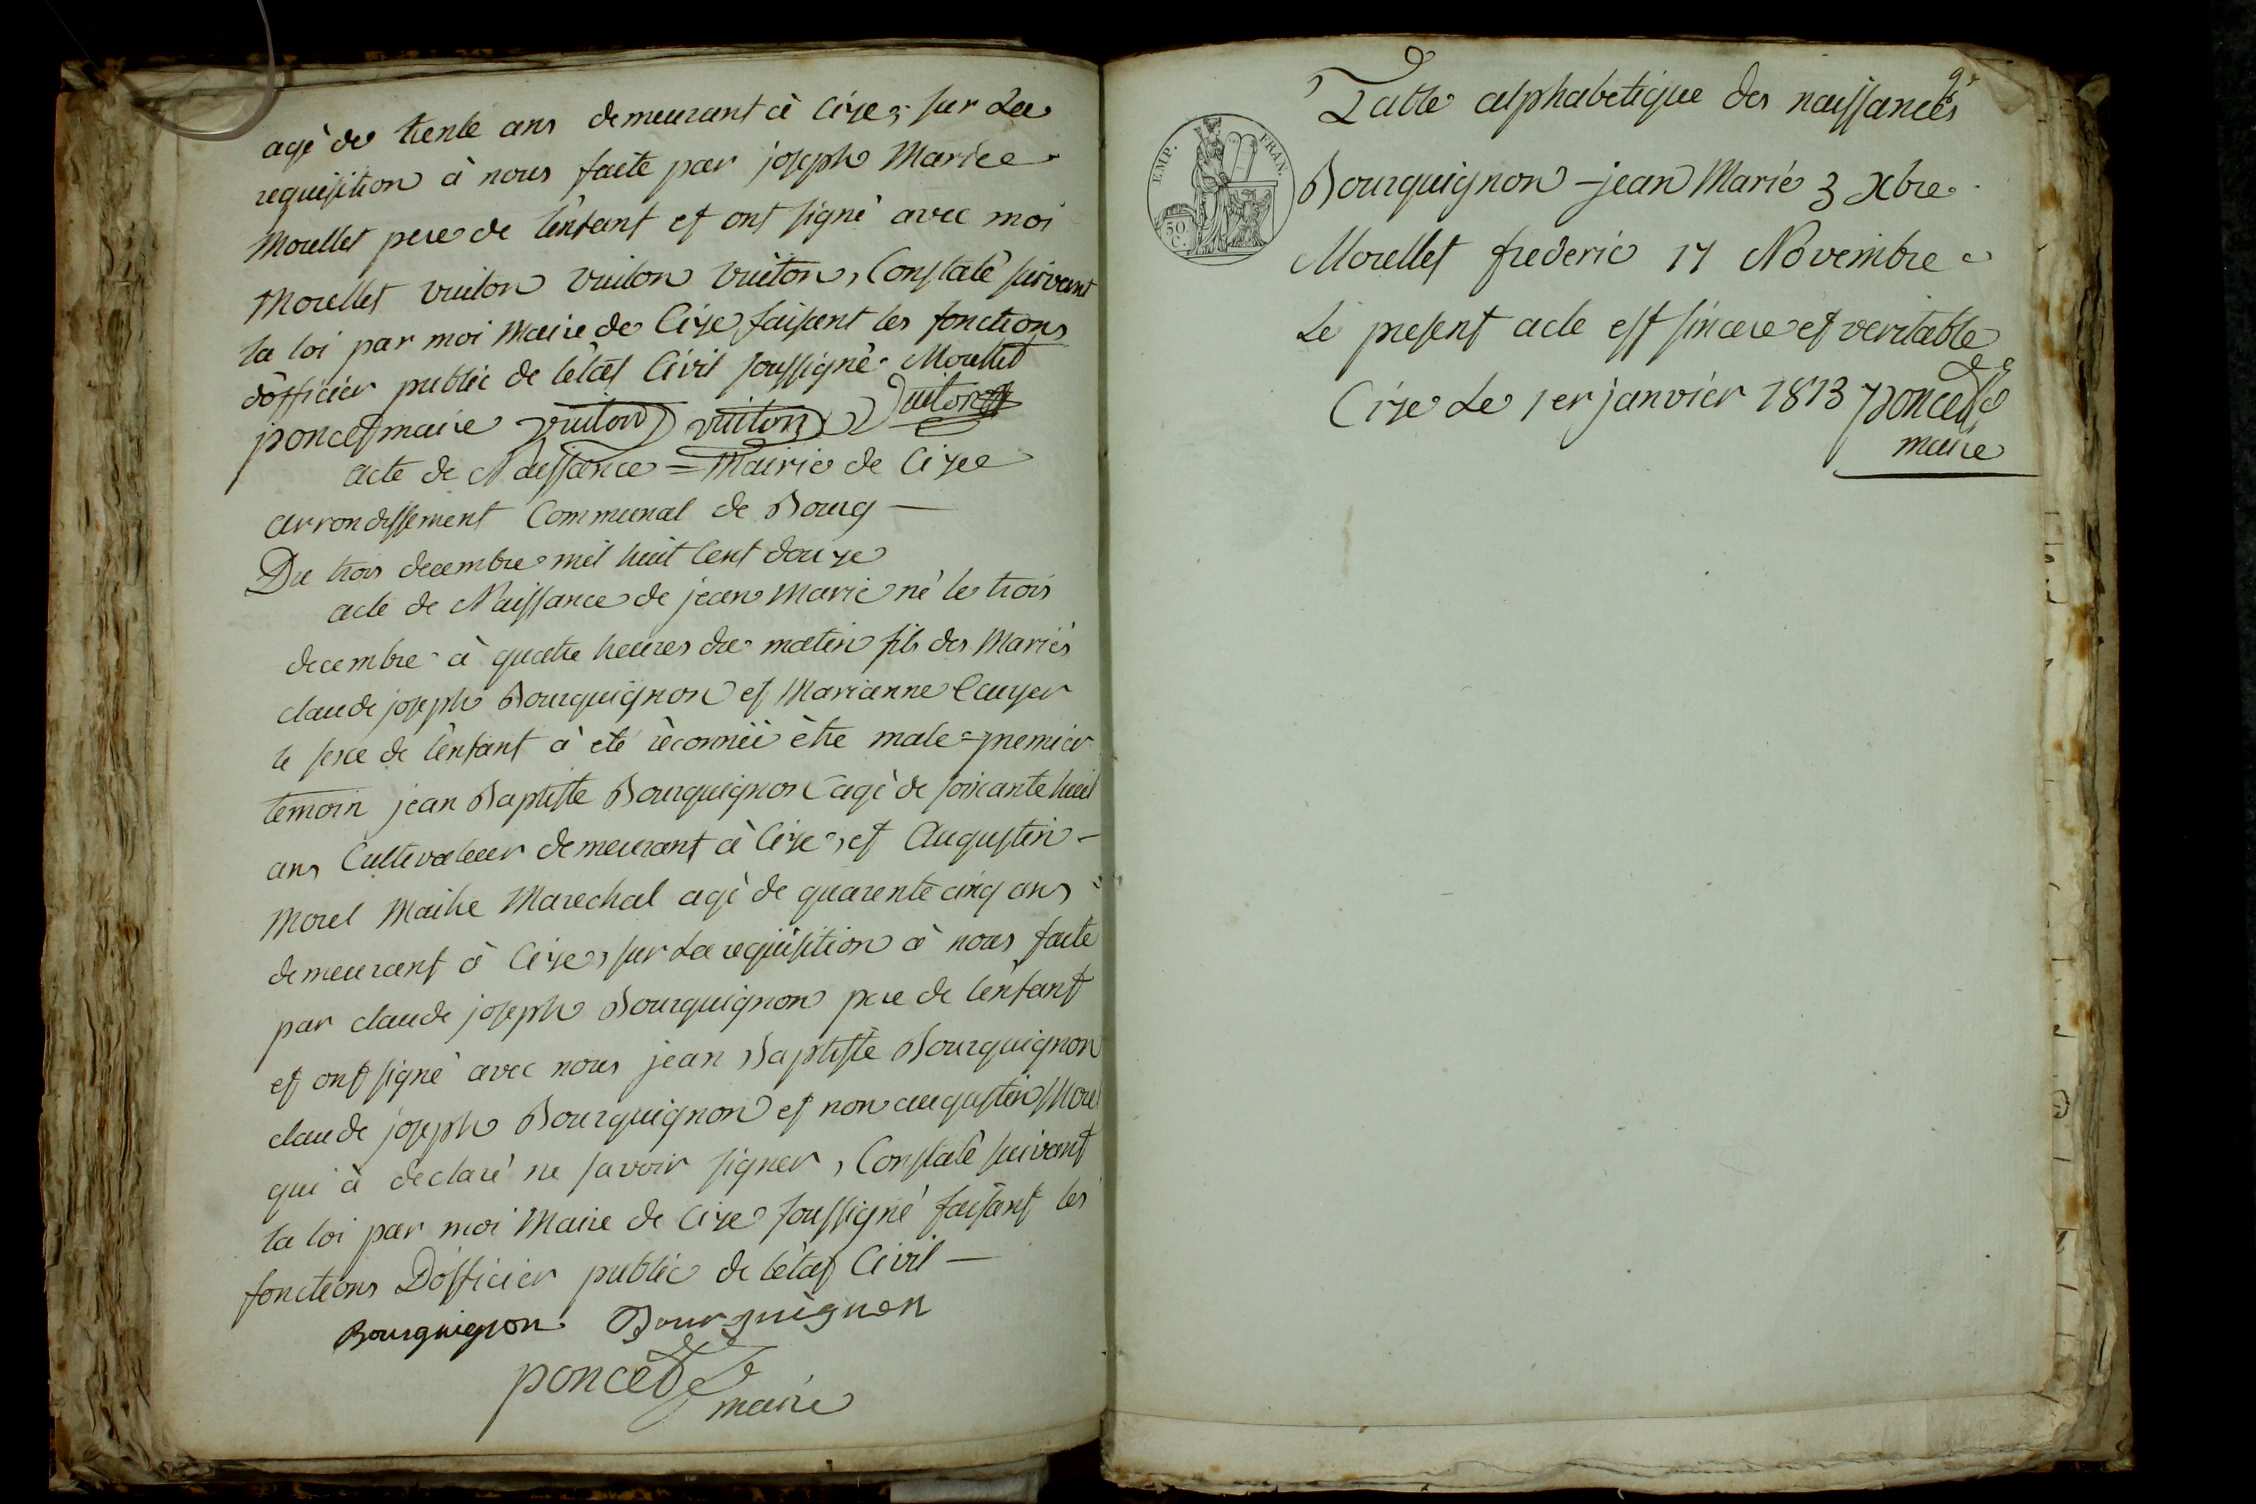 agé de trente ans demeurant à Cize, sur La
requisition à nous faite par joseph Marie
Morellet pere de l'enfant et ont signé avec moi
Morellet vuiton vuiton vuiton, Constaté suivant
la loi par moi Maire de Cize faisant les fonctions
d'officier public de l'état Civil soussigné. Morellet
poncet maire vuiton vuiton Vuiton
acte de Naissance = Mairie de Cize
arrondissement Communal de Bourg —
Du trois decembre mil huit Cent douze
acte de Naissance de jean Marie né le trois
decembre à quatre heures du matin fils des Mariés
claude joseph Bourguignon et Marianne
le sexe de l'enfant à eté reconnu être male = premier
temoin jean Baptiste Bourguignon agé de soixante huit
ans Cultivateur demeurant à Cize, et Augustin —
Morel Maitre Marechal agé de quarente cinq ans
demeurant à Cize, sur La requisition à nous faite
par claude joseph Bourguignon pere de l'enfant
et ont signé avec nous jean Baptiste Bourguignon
claude joseph Bourguignon et non augustin Morel
qui à declaré ne savoir signer, Constaté suivant
la loi par moi Maire de Cize soussigné faisant les
fonctions D'officier public de l'état Civil —
Bourguignon Bourguignon
poncet
maire
Table alphabetique des naissances
EMP. FRAN.
50 C.
Bourguignon - jean Marie 3 Xbre
Morellet frederic 17 Novembre
Le present acte est sincere et veritable
Cize Le 1er janvier 1813 poncet
maire